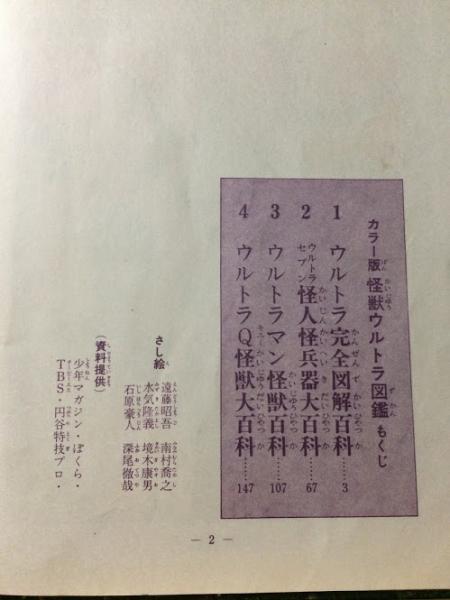 カラー版 怪獣ウルトラ図鑑 もくじ
1 ウルトラ完全図解百科……3
2 ウルトラセブン怪人怪兵器大百科……67
3 ウルトラマン怪獣大百科……107
4 ウルトラQ怪獣大百科……147
さし絵
遠藤昭吾 南村喬之
水気隆義 境木康男
石原豪人 深尾徹哉
(資料提供)
少年マガジン・ぼくら・
TBS・円谷特技プロ・
— 2 —